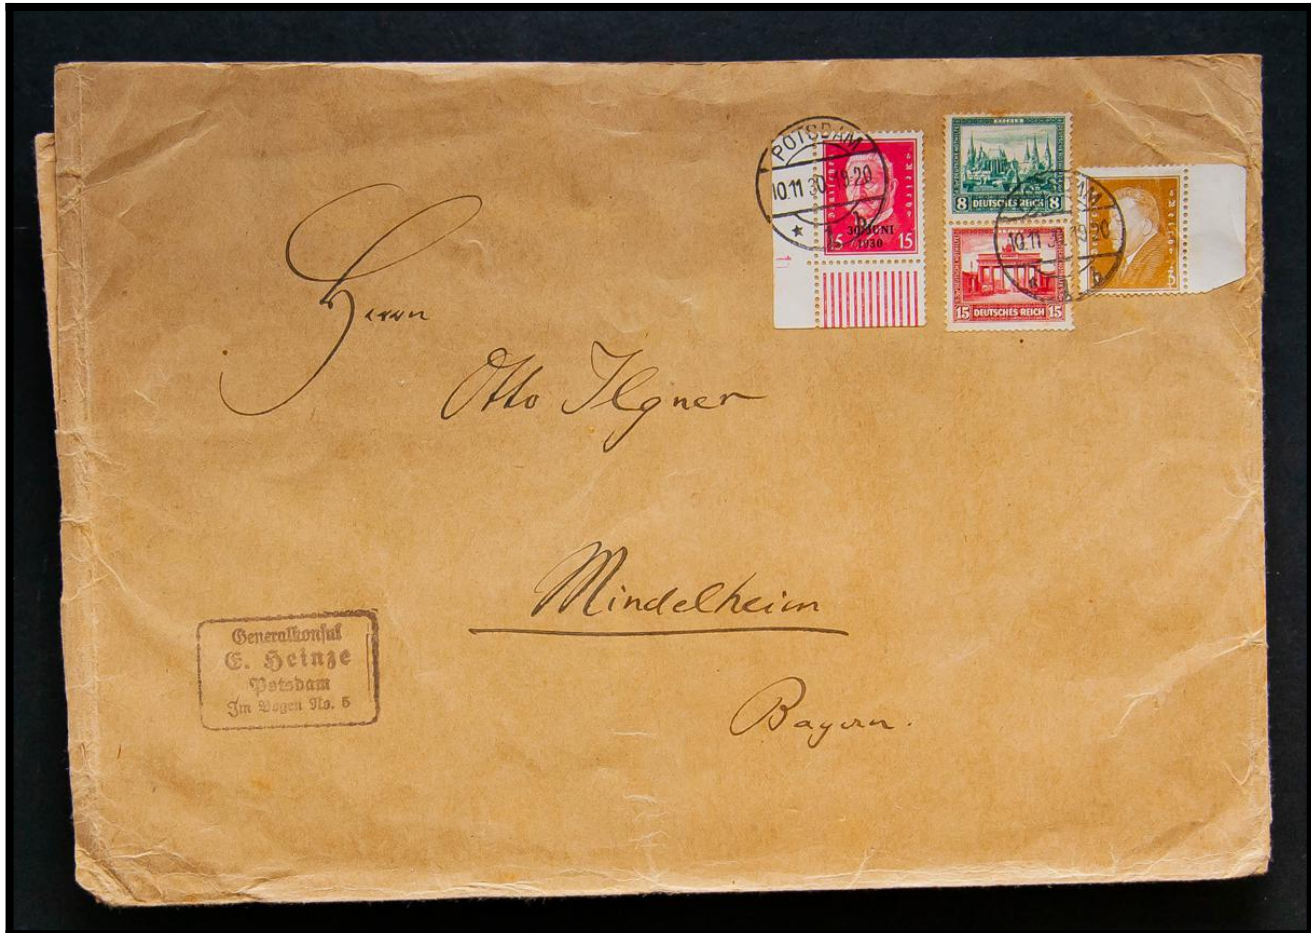 POTSDAM
10.11 30.19-20
* b
Deutsches Reich
30. JUNI
1930
15 15
AACHEN
8 DEUTSCHES REICH 8
15 DEUTSCHES REICH 15
POTSDAM
10.11 30.19-20
b
3
Herrn
Otto Ilgner
Mindelheim
Bayern.
Generalkonsul
E. Heinze
Potsdam
Im Bogen No. 5